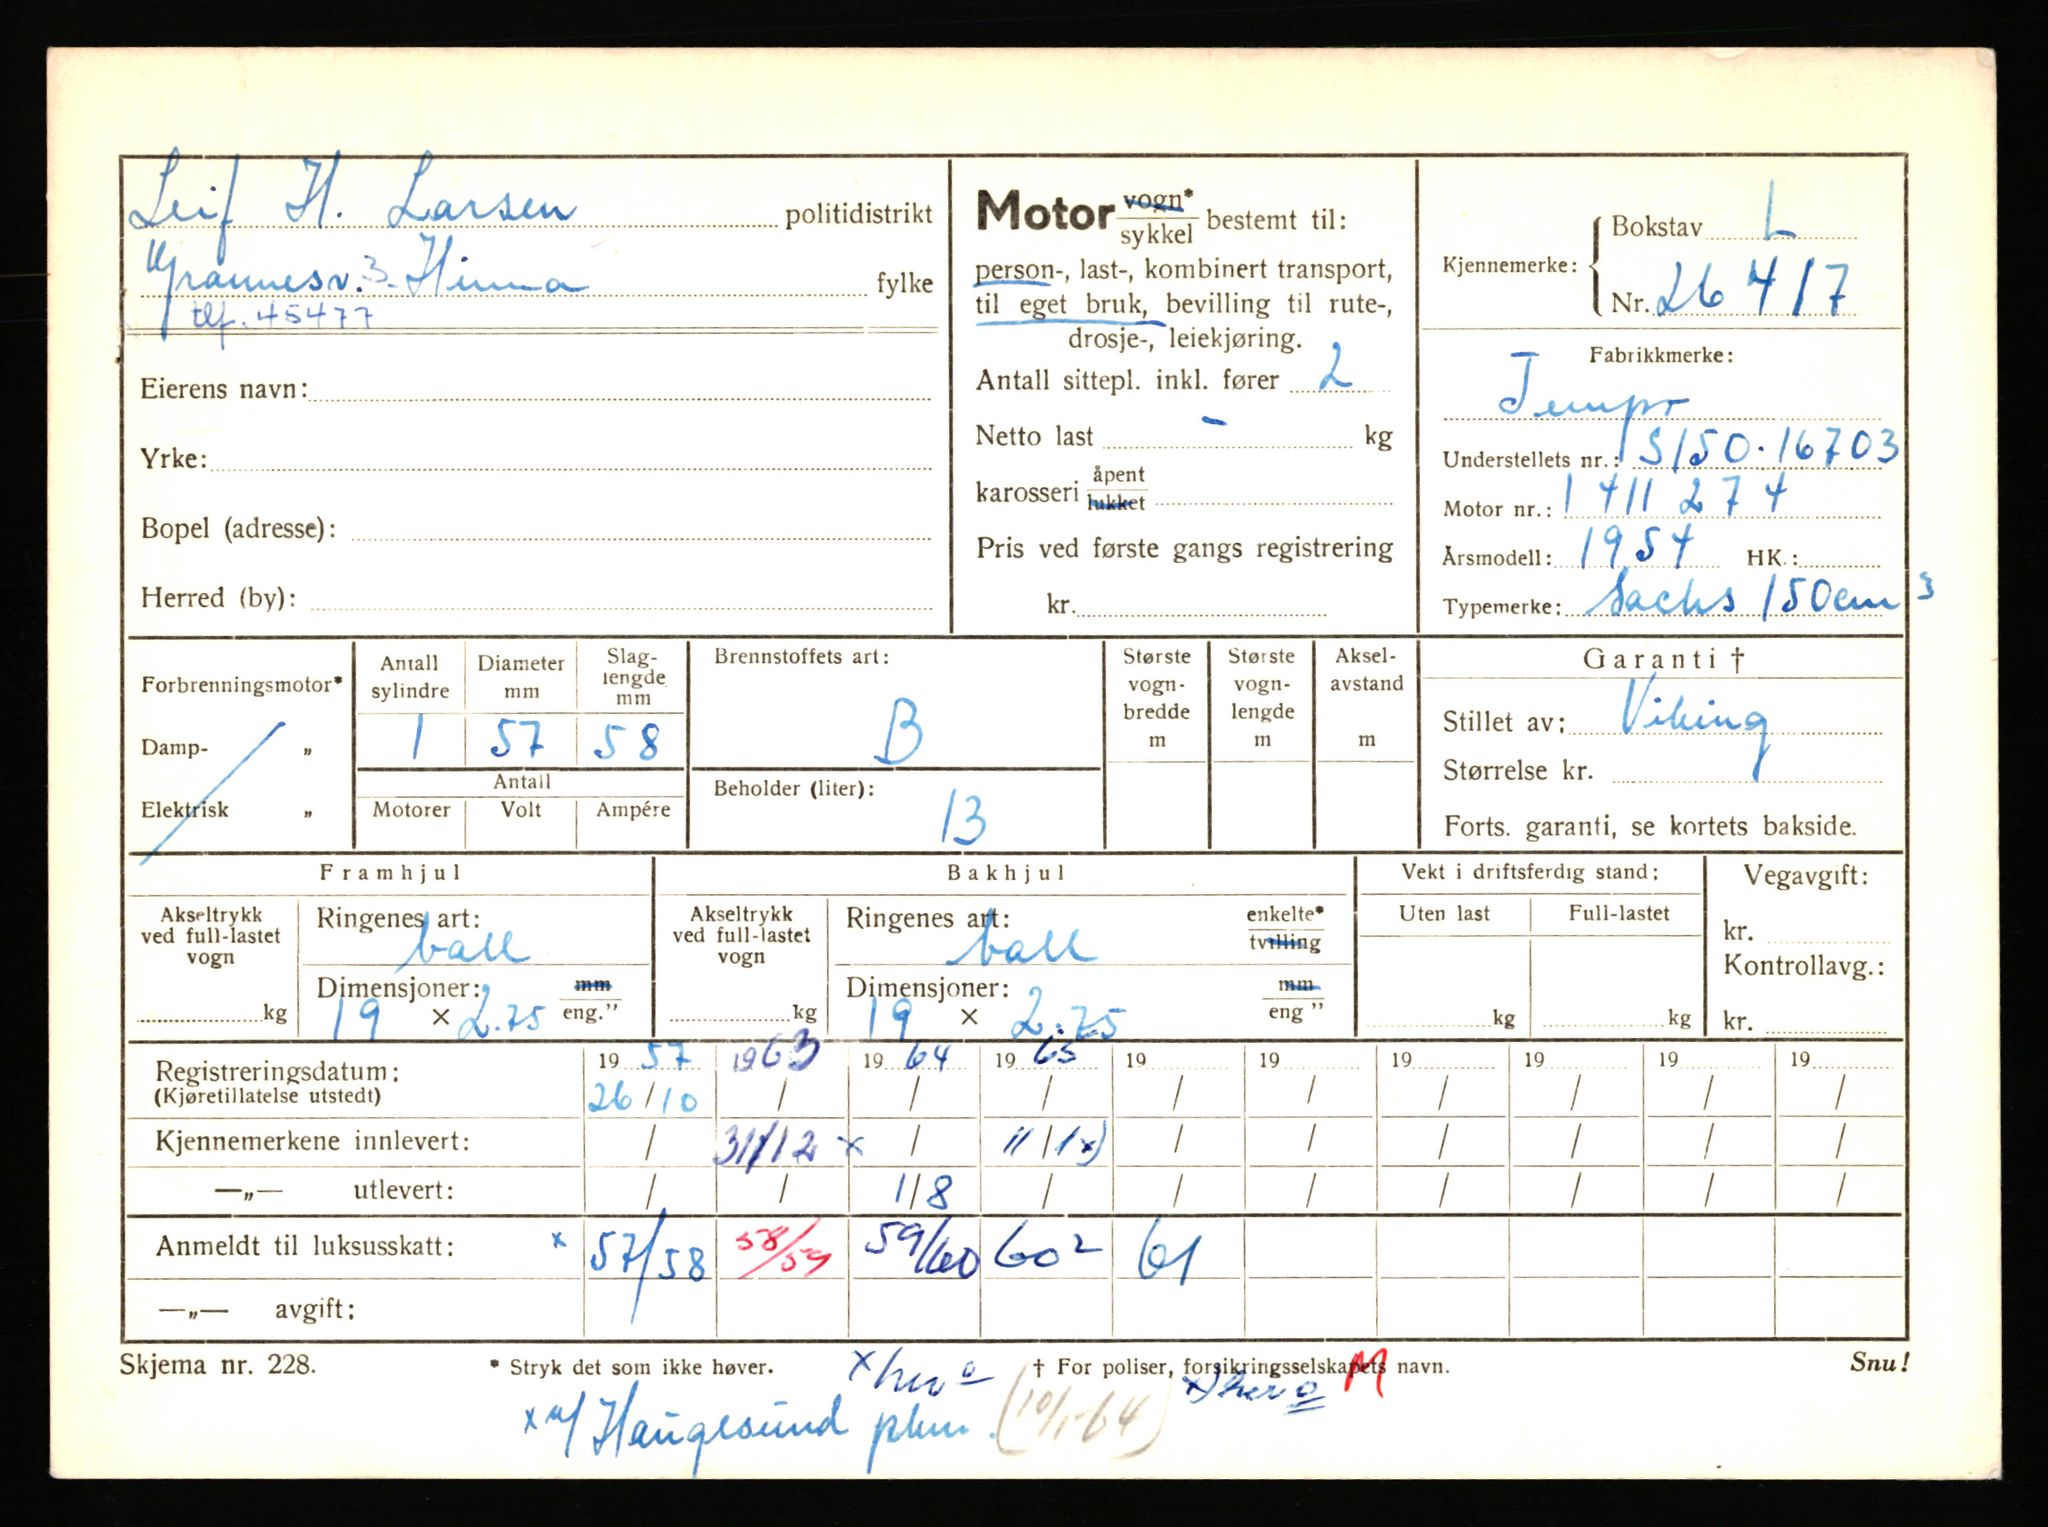 Leif H. Larsen politidistrikt
Grannesv. 3 - Hinna fylke
tlf. 45477
Eierens navn:
Yrke:
Bopel (adresse):
Herred (by):
Motor vogn* sykkel bestemt til:
person-, last-, kombinert transport,
til eget bruk, bevilling til rute-,
drosje-, leiekjøring.
Antall sittepl. inkl. fører 2
Netto last - kg
karosseri åpent lukket
Pris ved første gangs registrering
kr.
Kjennemerke: Bokstav L
Nr. 26417
Fabrikkmerke:
Tempo
Understellets nr.: S150.16703
Motor nr.: 1411274
Årsmodell: 1954 HK.:
Typemerke: Sachs 150cm3
Forbrenningsmotor*
Damp- „
Elektrisk „
Antall sylindre
1
Diameter mm
57
Slag- lengde mm
58
Antall
Motorer Volt Ampére
Brennstoffets art:
B
Beholder (liter):
13
Største vogn- bredde m
Største vogn- lengde m
Aksel- avstand m
Garanti †
Stillet av: Viking
Størrelse kr.
Forts. garanti, se kortets bakside.
Framhjul
Akseltrykk ved full-lastet vogn
kg
Ringenes art:
ball
Dimensjoner: mm
19 × 2.75 eng."
Bakhjul
Akseltrykk ved full-lastet vogn
kg
Ringenes art: enkelte* tvilling
ball
Dimensjoner: mm
19 × 2.75 eng "
Vekt i driftsferdig stand:
Uten last Full-lastet
kg kg
Vegavgift:
kr.
Kontrollavg.:
kr.
Registreringsdatum: 19 57 1963 19 64 19 65 19 19 19 19 19 19
(Kjøretillatelse utstedt) 26/10 / / / / / / / / /
Kjennemerkene innlevert: / 31/12 x / 11/1 x) / / / / / /
—„— utlevert: / / 1/8 / / / / / / /
Anmeldt til luksusskatt: x 57/58 58/59 59/60 60² 61
—„— avgift:
Skjema nr. 228. * Stryk det som ikke høver. † For poliser, forsikringsselskapets navn. Snu!
x her M
x) her
x Haugesund (10/1-64)